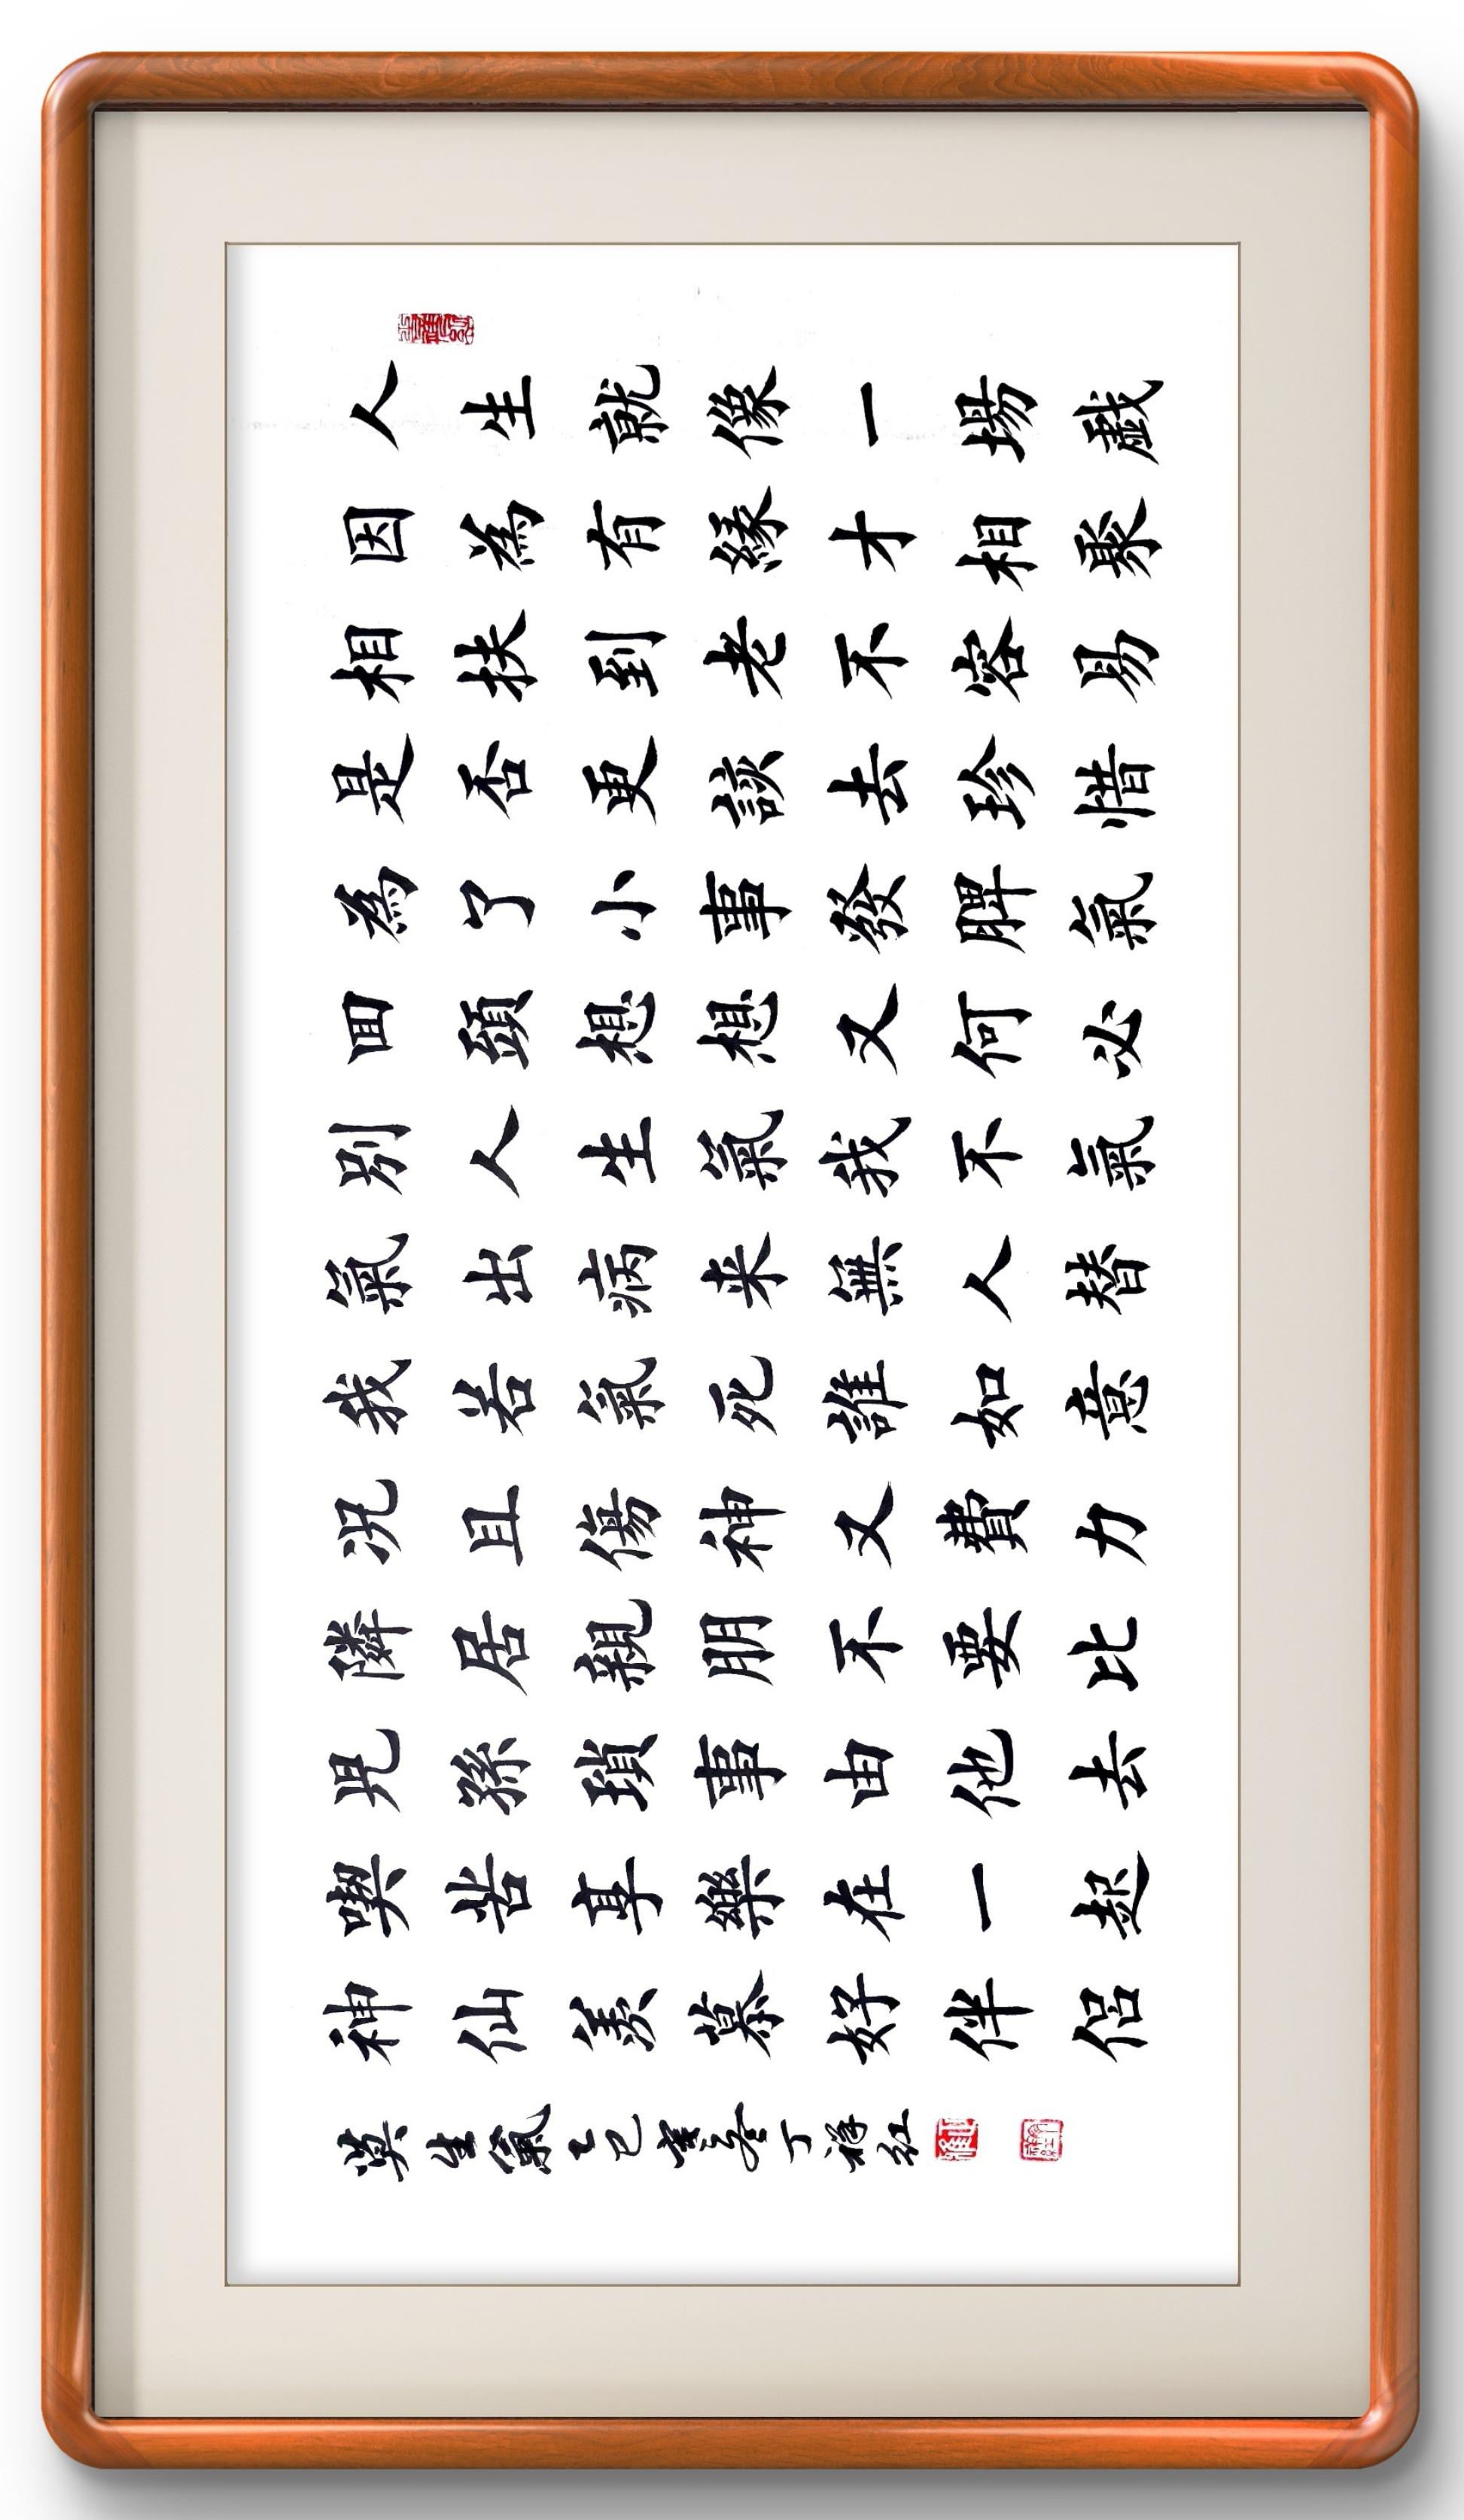 人生就像一場戯
因為有緣才相聚
相扶到老不容易
是否更該去珍惜
為了小事發脾氣
回頭想想又何必
别人生氣我不氣
氣出病来無人替
我若氣死誰如意
况且傷神又費力
隣居親朋不要比
児孫瑣事由他去
喫苦享樂在一起
神仙羡慕好伴侣
莫生氣乙巳丁祥红